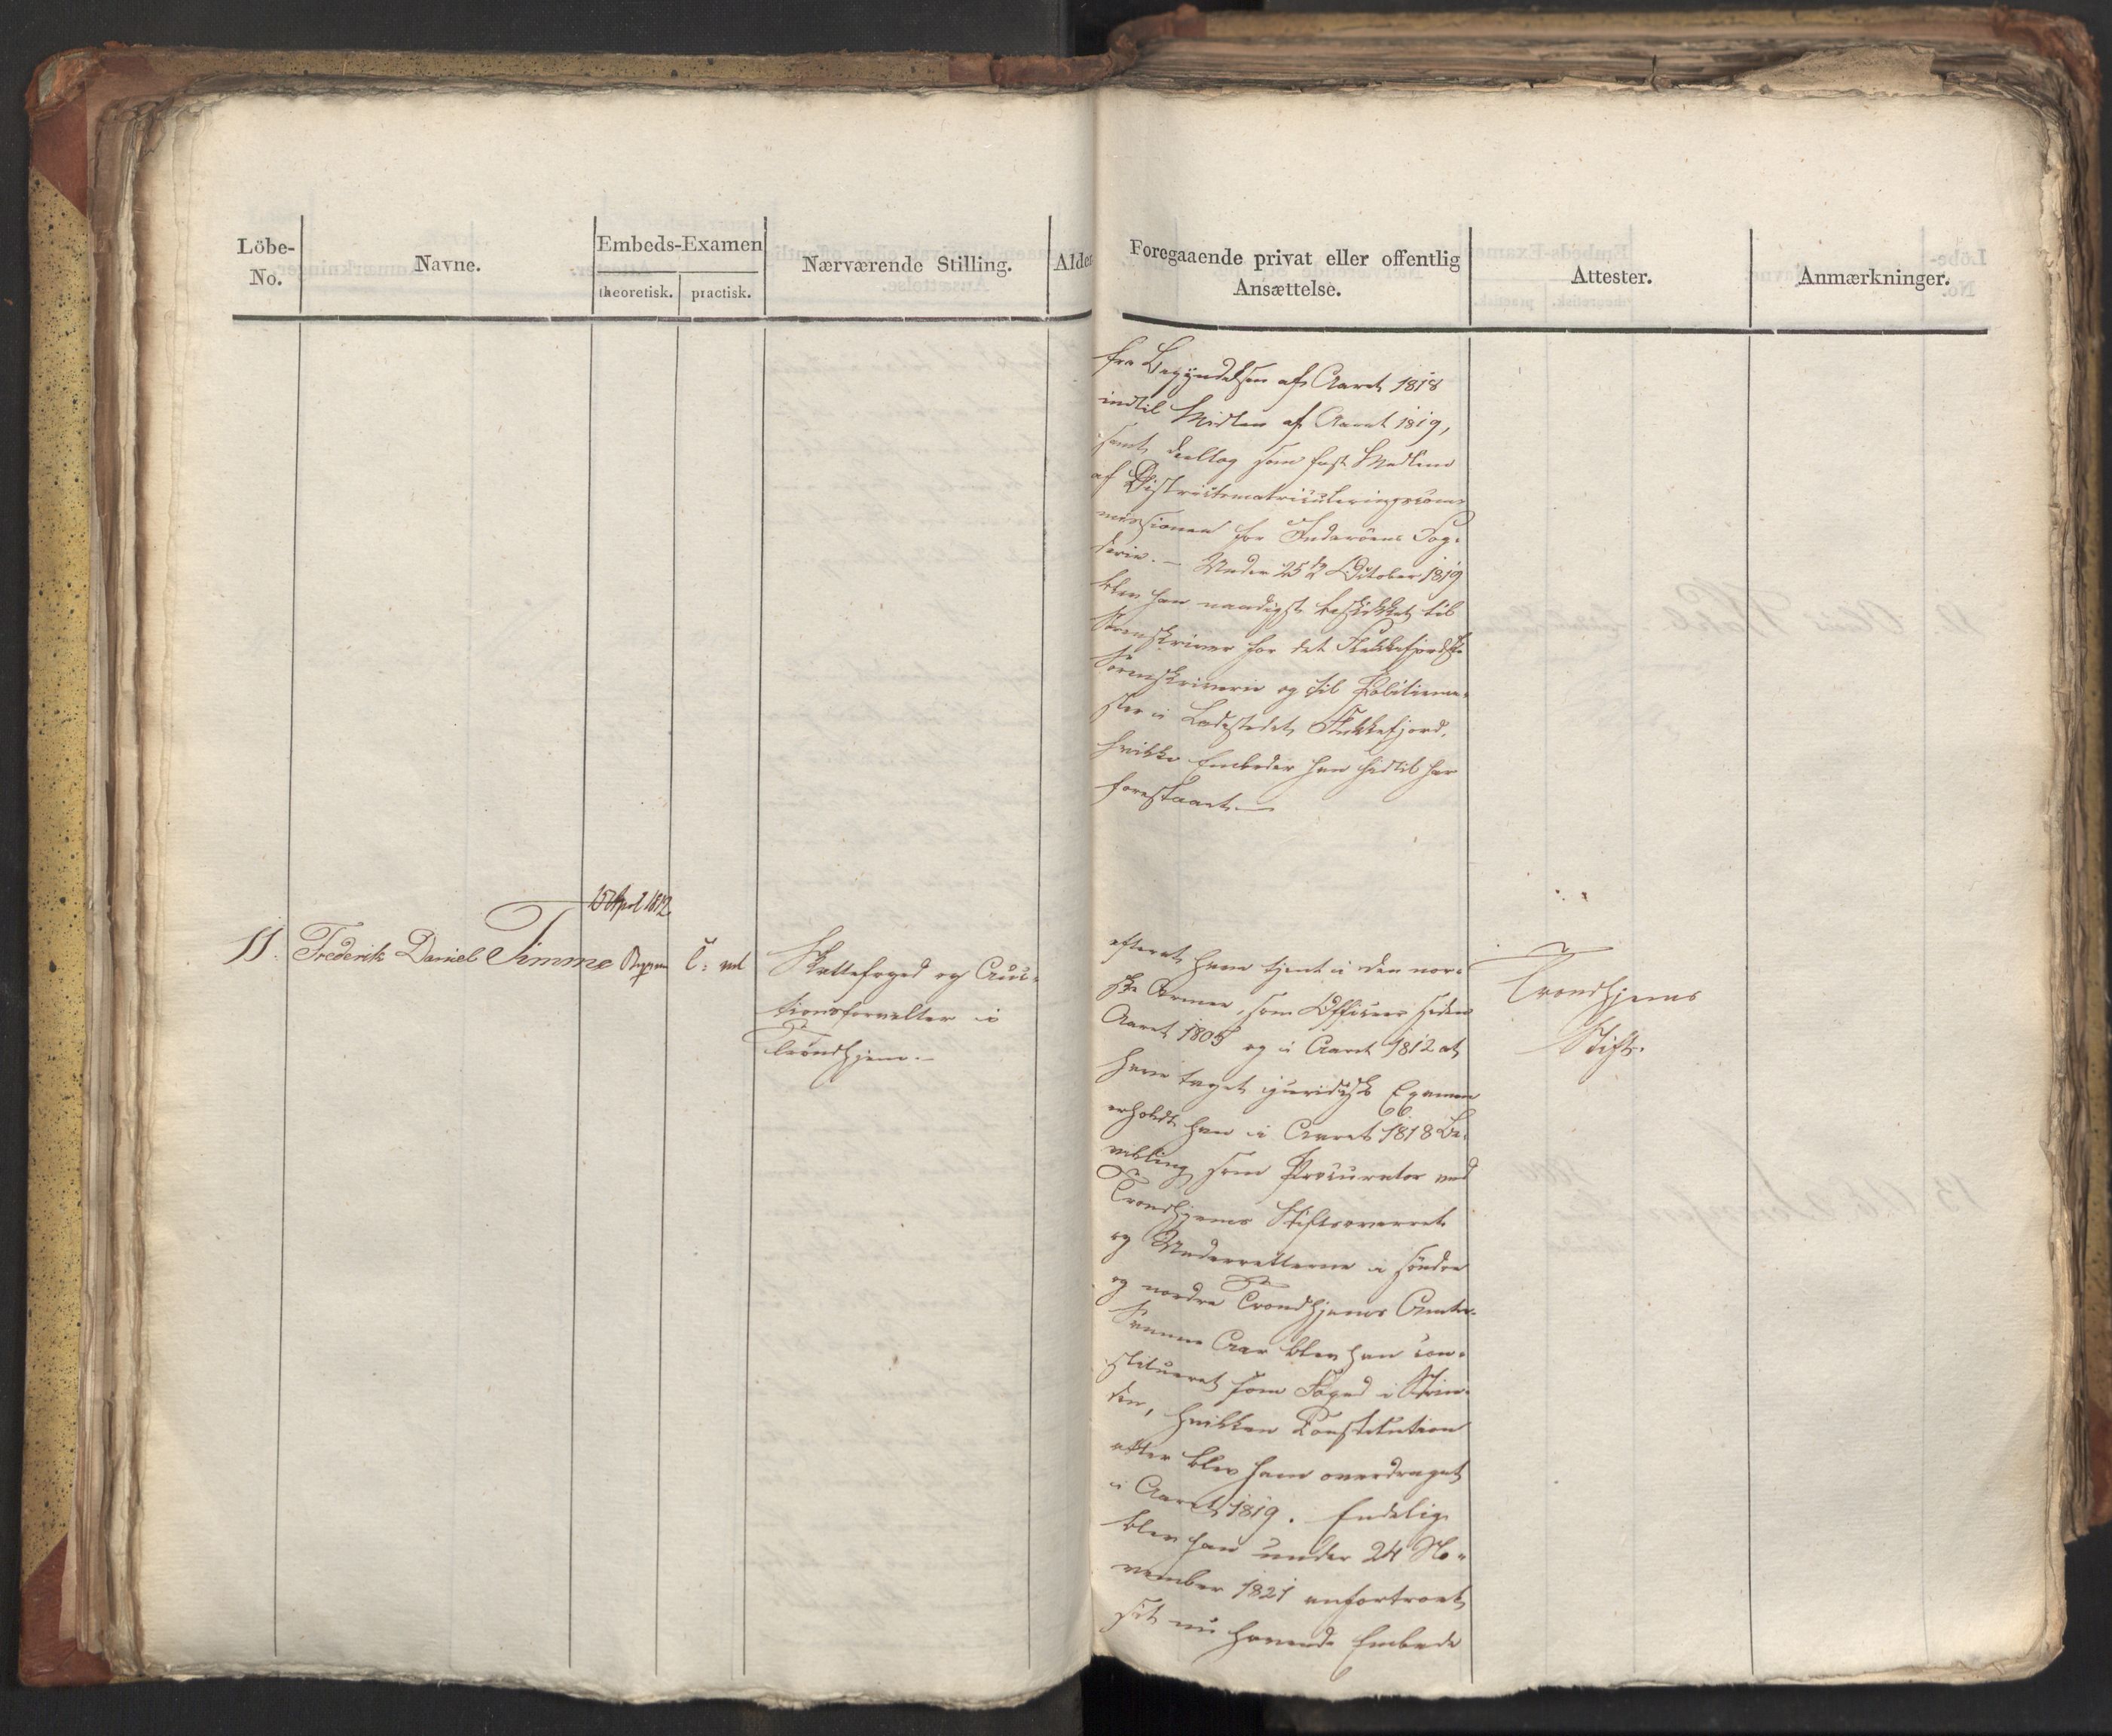 Löbe-
No.
Navne.
Embeds-Examen
theoretisk.
practisk.
Nærværende Stilling.
Alder
Foregaaende privat eller offentlig
Ansættelse.
Attester.
Anmærkninger.
fra Begyndelsen af Aaret 1818
indtil Midten af Aaret 1819,
samt deeltog som fast Medlem
af Districtsmatriculeringscom-
missionen for Inderøens Fog-
derie. – Under 25de October 1819
blev han naadigst beskikket til
Sorenskriver for det Flekkefjordske
Sorenskriverie og til Politieme-
ster i Ladestedet Flekkefjord,
hvilke Embeder han hidtil har
forestaaet. –
15 April 1812
11.
Frederik Daniel Timme
Skattefoged og Auc-
tionsforvalter i
Trondhjem. –
efterat have tjent i den nor-
ske Armee, som Officeer siden
Aaret 1805 og i Aaret 1812 at
have taget juridisk Examen
erholdt han i Aaret 1818 Be-
villing som Procurator ved
Trondhjems Stiftsoverret
og Underretterne i søndre
og nordre Trondhjems Amter.
Samme Aar blev han con-
stitueret som Foged i Strin-
den, hvilken Constitution
atter blev ham overdraget
i Aaret 1819. Endelig
blev han under 24 No-
vember 1821 anfortroet
sit nu havende Embede
Trondhjems
Stift.